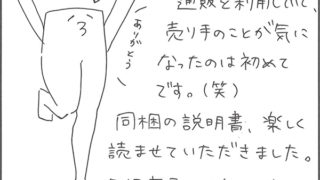 通販を利用していて、
売り手のことが気に
なったのは初めて
です。(笑)
同梱の説明書、楽しく
読ませていただきました。
ありがとう
ろ